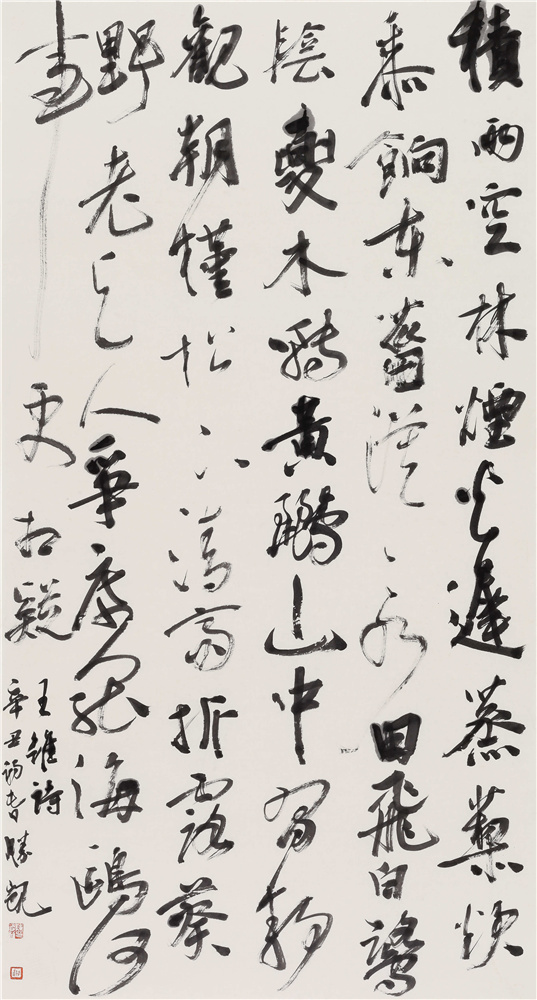 積雨空林煙火遲蒸藜炊
黍餉東菑漠、水田飛白鷺
陰夏木囀黃鸝山中習靜
觀朝槿松下清齋折露葵
野老與人爭席罷海鷗何
事更相疑
王維詩
辛丑初春勝凱